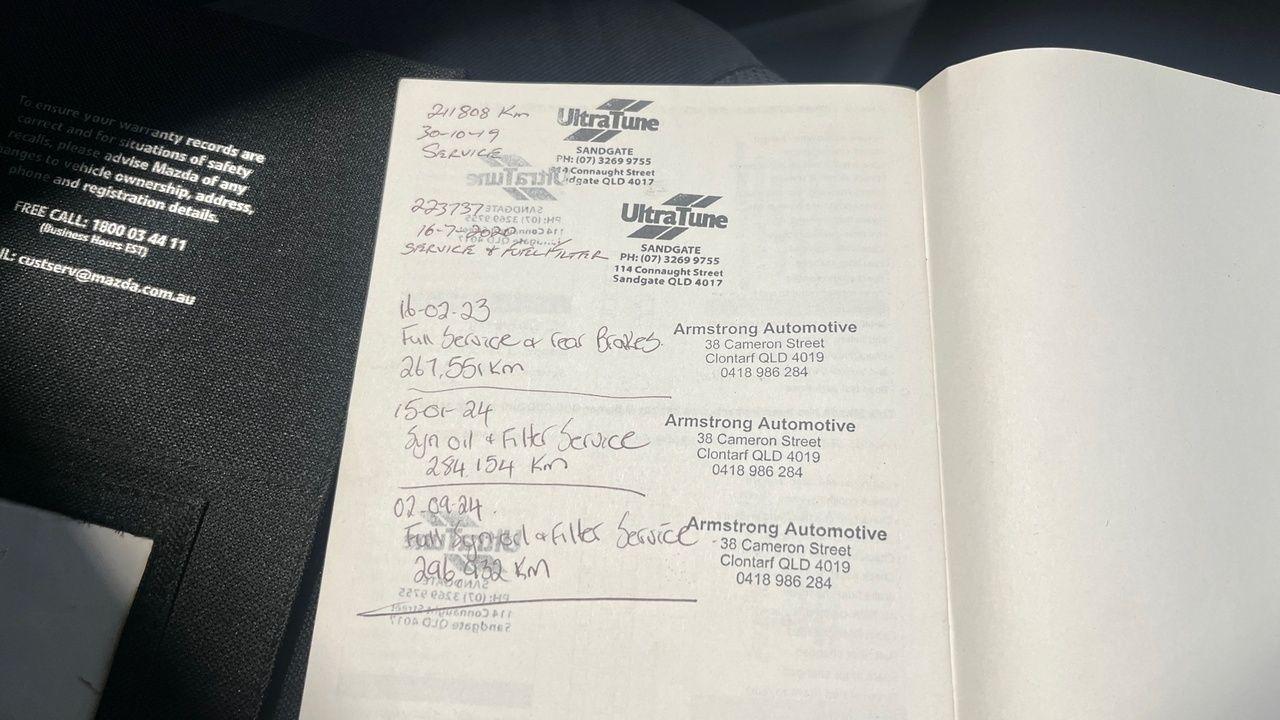 To ensure your warranty records are
correct and for situations of safety
recalls, please advise Mazda of any
changes to vehicle ownership, address,
phone and registration details.
FREE CALL: 1800 03 44 11
(Business Hours EST)
custserv@mazda.com.au
211808 Km
30-10-19
SERVICE
UltraTune
SANDGATE
PH: (07) 3269 9755
114 Connaught Street
Sandgate QLD 4017
223737
16-7-2020
SERVICE & FUEL FILTER
UltraTune
SANDGATE
PH: (07) 3269 9755
114 Connaught Street
Sandgate QLD 4017
16-02-23
Full Service & rear Brakes.
267,551Km
Armstrong Automotive
38 Cameron Street
Clontarf QLD 4019
0418 986 284
15-01-24
Syn oil & Filter Service
284,154 Km
Armstrong Automotive
38 Cameron Street
Clontarf QLD 4019
0418 986 284
02-09-24.
Full Syn oil & Filter Service.
296,932 KM
Armstrong Automotive
38 Cameron Street
Clontarf QLD 4019
0418 986 284